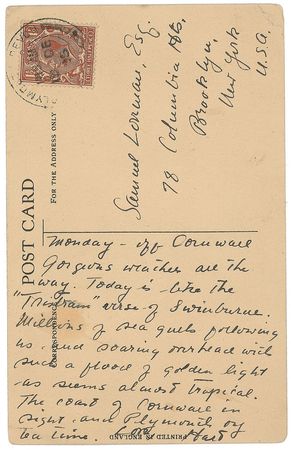 POST CARD
FOR THE ADDRESS ONLY
Samuel Loveman, Esq.
78 Columbia Hts.
Brooklyn,
New York
U.S.A.
CORRESPONDENCE
Monday – off Cornwall
Gorgeous weather all the
way. Today is like the
"Tristram" verse of Swinburne.
Millions of sea gulls following
us and soaring overhead with
such a flood of golden light
as seems almost tropical.
The coast of Cornwall in
sight, and Plymouth by
tea time.
Hart
PRINTED IN ENGLAND